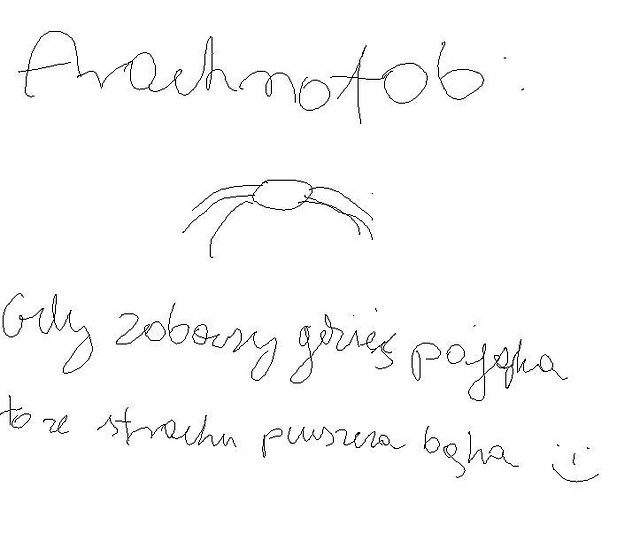 Arachnofob:
Gdy zobaczy gdzieś pająka
to ze strachu puszcza bąka :)